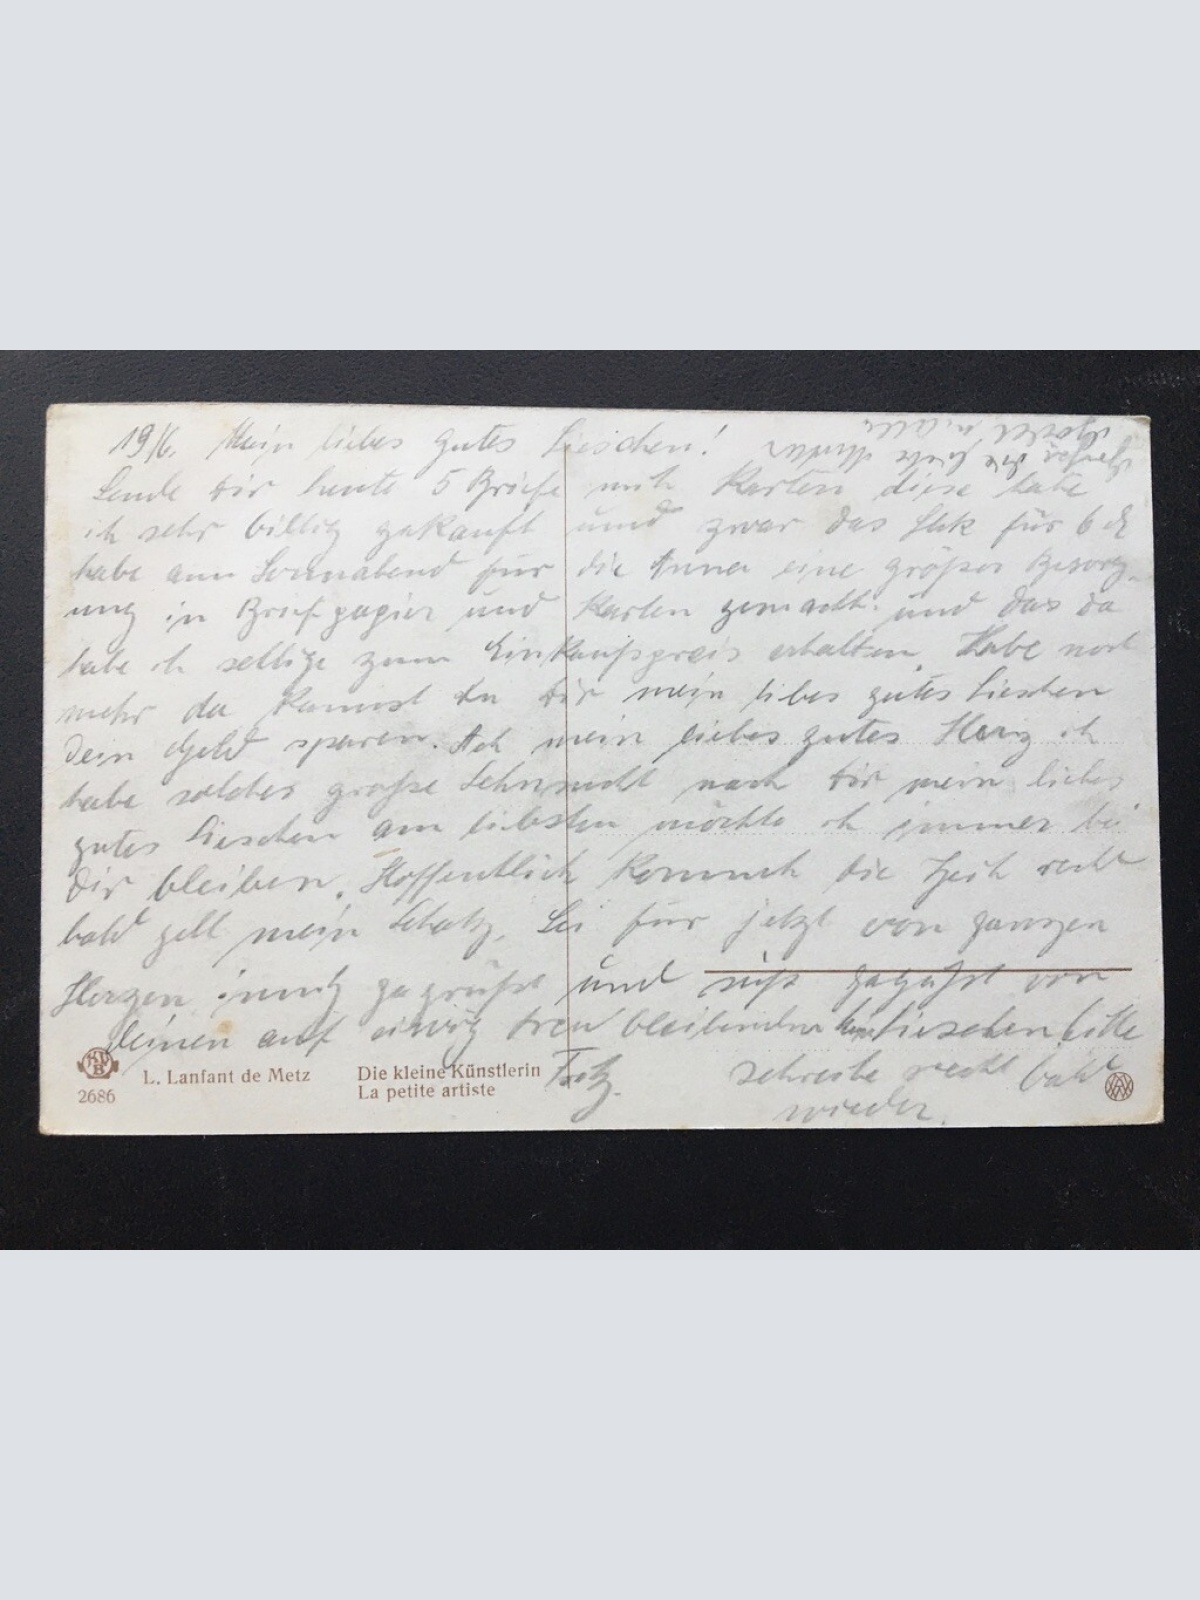 19/6. Mein liebes gutes Lieschen!
Sende Dir heute 5 Briefe mit Karten diese habe
ich sehr billig gekauft und zwar das Stk für 6 ₰
habe am Sonnabend für die Anna eine größer Besorg-
ung in Briefpapier und Karten gemacht. und das da
habe ich selbige zum Einkaufspreis erhalten. Habe noch
mehr da kannst Du Dir mein liebes gutes Lieschen
dein Geld sparen. Ach mein liebes gutes Herz ich
habe solches große Sehnsucht nach Dir mein liebes
gutes Lieschen am liebsten möchte ich immer bei
Dir bleiben. Hoffentlich kommt die Zeit recht
bald gelt mein Schatz. Sei für jetzt von ganzen
Herzen innig gegrüßt und süß geküßt von
deinen auf ewig treu bleibenden Lieschen bitte
Fritz. schreibe recht bald
wieder.
die Mutter
KVB
2686
L. Lanfant de Metz
Die kleine Künstlerin
La petite artiste